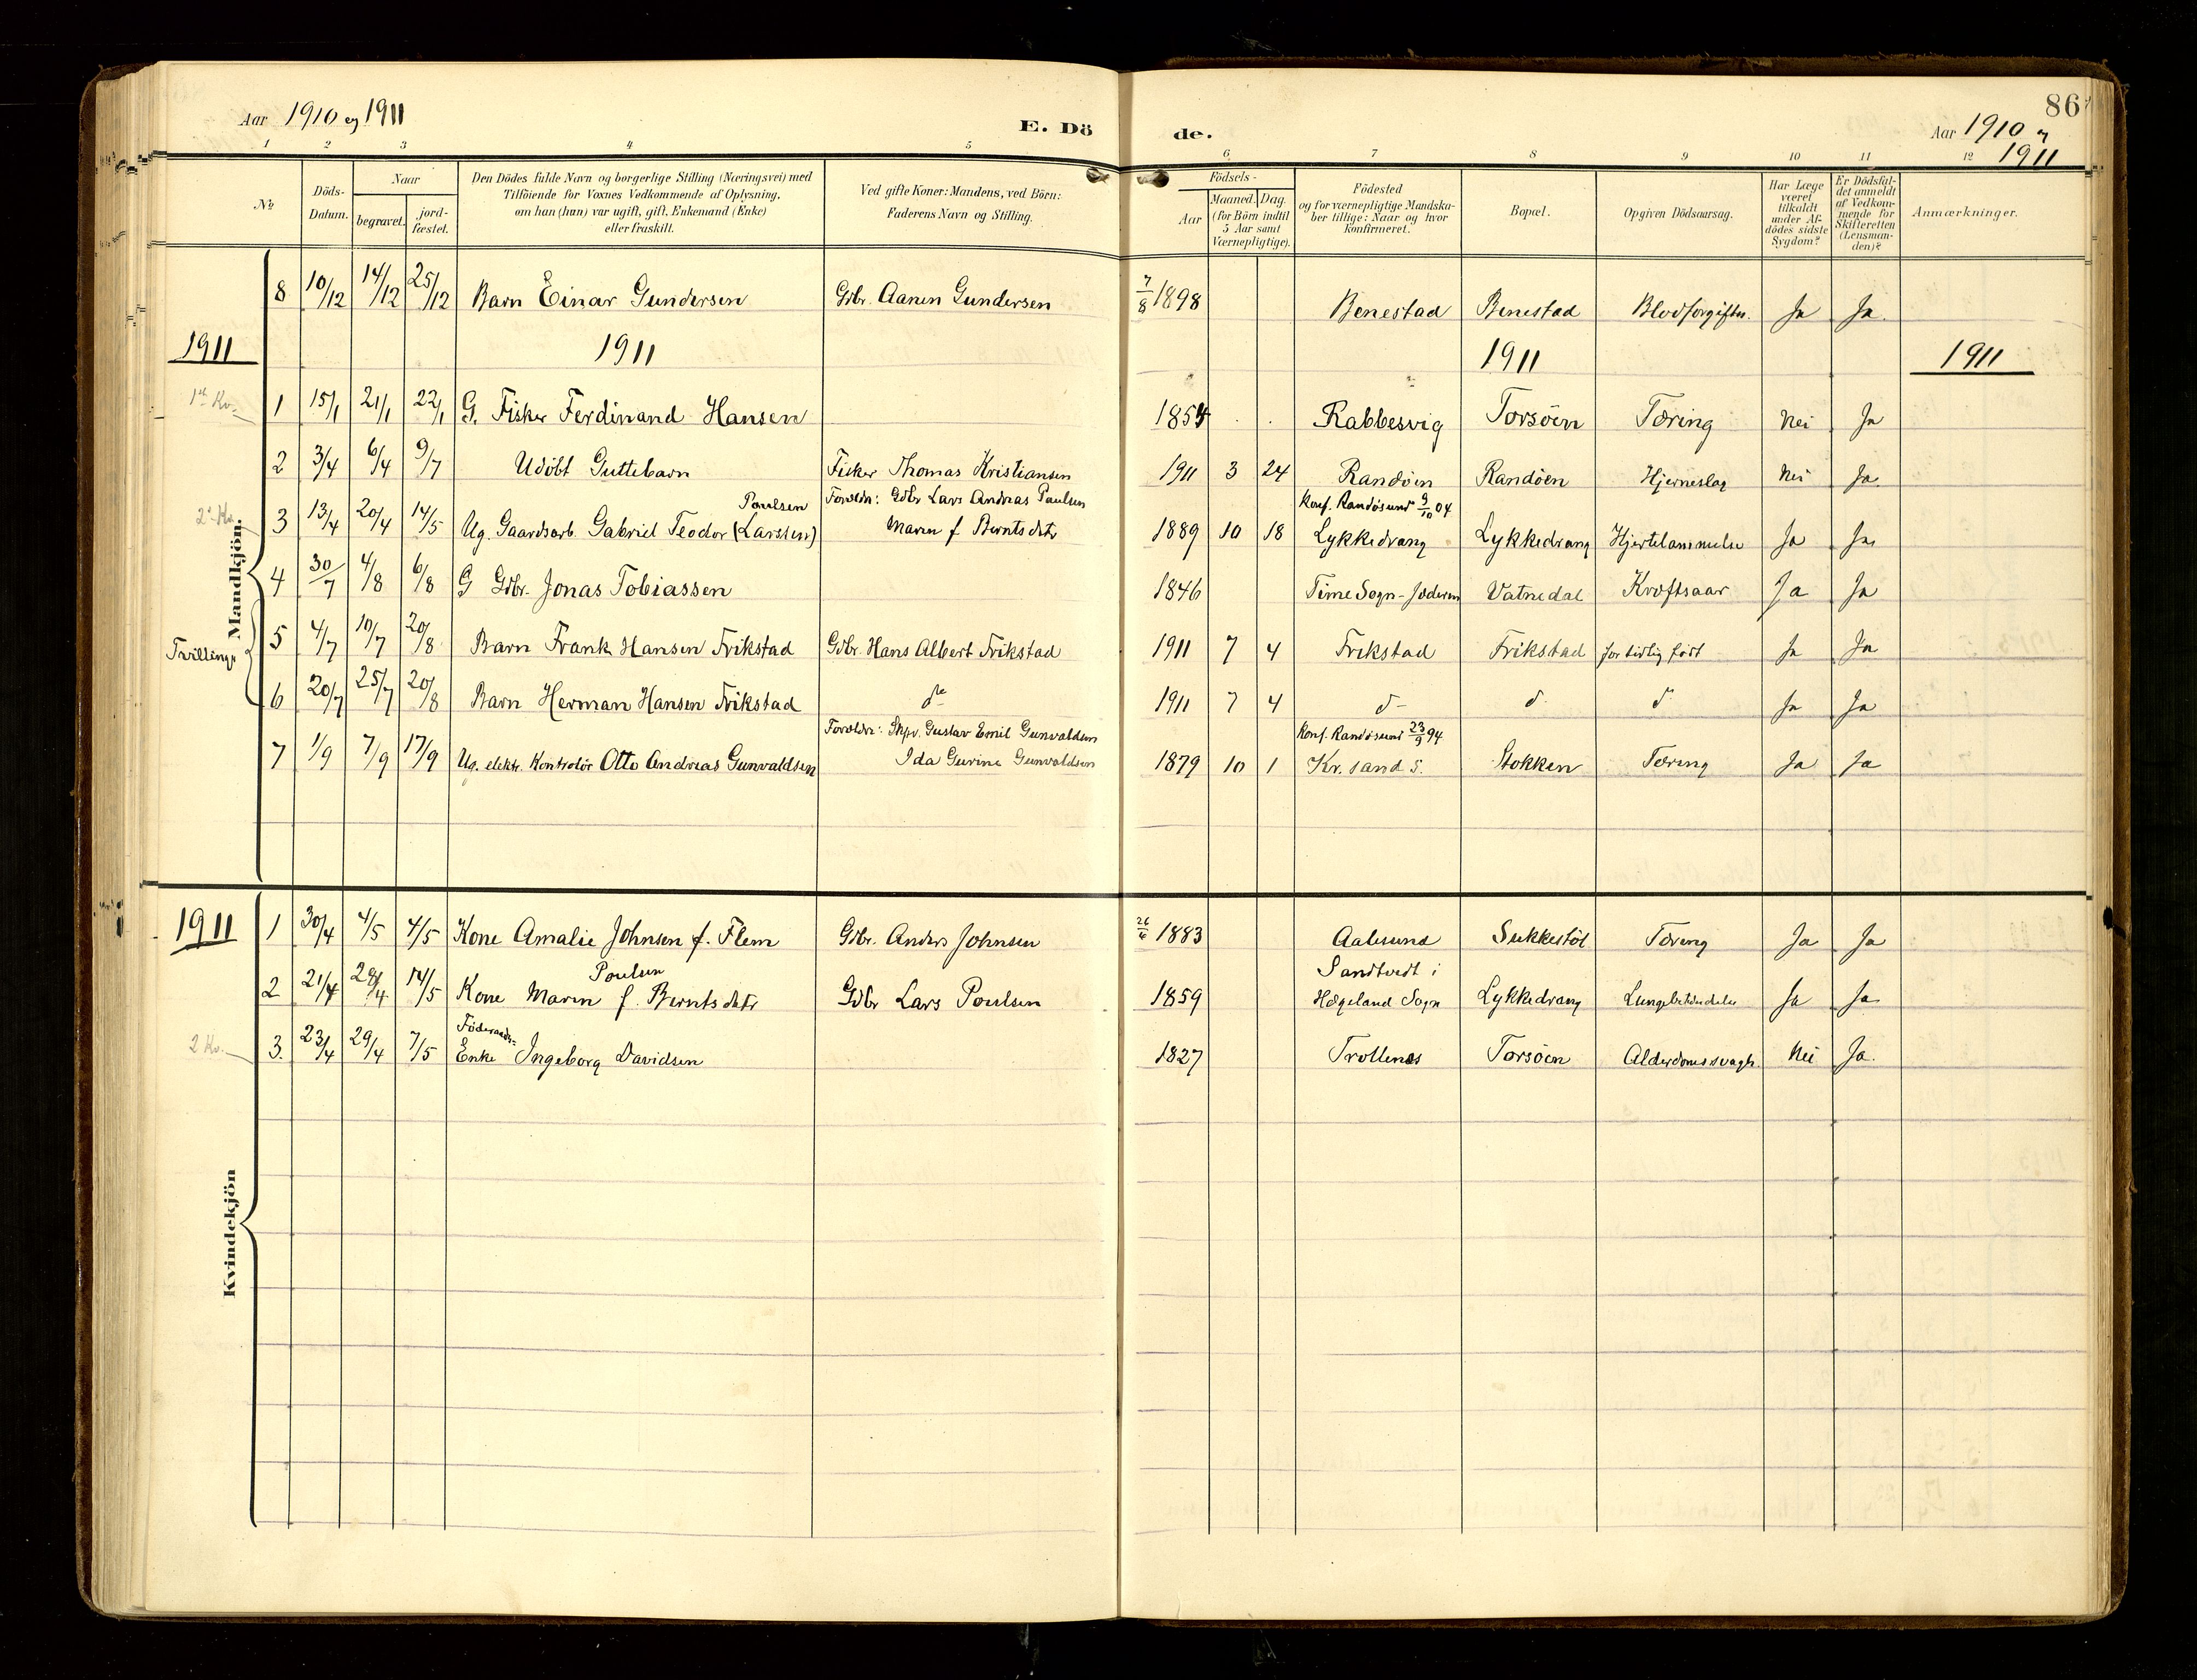 86
Aar 1910 og 1911
E. Dö de.
Aar 1910 og 1911
1 2 3 4 5 6 7 8 9 10 11 12
No
Döds-Datum.
Naar
begravet.
jord-fæstet.
Den Dödes fulde Navn og borgerlige Stilling (Næringsvei) med
Tilföiende for Voxnes Vedkommende af Oplysning,
om han (hun) var ugift, gift, Enkemand (Enke)
eller fraskilt.
Ved gifte Koner: Mandens, ved Börn:
Faderens Navn og Stilling.
Födsels-
Aar
Maaned. Dag.
(for Börn indtil
5 Aar samt
Værnepligtige).
Födested
og for værnepligtige Mandska-
ber tillige: Naar og hvor
konfirmeret.
Bopæl.
Opgiven Dödsaarsag.
Har Læge
været
tilkaldt
under Af-
dödes sidste
Sygdom?
Er Dödsfal-
det anmeldt
af Vedkom-
mende for
Skifteretten
(Lensman-
den)?
Anmærkninger.
8 10/12 14/12 25/12 Barn Einar Gundersen Gdbr. Aanen Gundersen 7/8 1898 Benestad Benestad Blodforgiftn. Ja Ja
1911 1911 1911 1911
1st Kv.
1 15/1 21/1 22/1 G. Fisker Ferdinand Hansen 1854 Rabbesvig Torsöen Tæring Nei Ja
2 3/4 6/4 9/7 Udöbt Guttebarn Fisker Thomas Kristiansen 1911 3 24 Randöen Randöen Hjerneslag Nei Ja
Poulsen Foreldr: Gdbr Lars Andreas Poulsen Konf. Randösund 9/10 04
2 Kv.
3 13/4 20/4 14/5 Ug. Gaardsarb. Gabriel Teodor (Larssen) Maren f. Berntsdtr 1889 10 18 Lykkedrang Lykkedrang Hjertelammelse Ja Ja
4 30/7 4/8 6/8 G Gdbr. Jonas Tobiassen 1846 Time Sogn - Jæderen Vatnedal Kræftsaar Ja Ja
Mandkjön.
Tvillinger
5 4/7 10/7 20/8 Barn Frank Hansen Frikstad Gdbr. Hans Albert Frikstad 1911 7 4 Frikstad Frikstad for tidlig født Ja Ja
6 20/7 25/7 20/8 Barn Herman Hansen Frikstad do 1911 7 4 do do do Ja Ja
Foreldr: Skpr. Gustav Emil Gunvaldsen Konf. Randösund 23/9 94
7 1/9 7/9 17/9 Ug. elektr. Kontrolör Otto Andreas Gunvaldsen Ida Gurine Gunvaldsen 1879 10 1 Kr.sand S. Stokken Tæring Ja Ja
1911 1 30/4 4/5 4/5 Kone Amalie Johnsen f. Flem Gdbr. Anders Johnsen 26/6 1883 Aalesund Sukkestöl Tæring Ja Ja
Poulsen Sandtvedt i
2 21/4 29/4 14/5 Kone Maren f. Berntsdtr Gdbr Lars Poulsen 1859 Hægeland Sogn Lykkedrang Lungebetændelse Ja Ja
Föderaads-
2 Kv.
3. 23/4 29/4 7/5 Enke Ingeborg Davidsen 1827 Trollenes Torsöen Alderdomssvagh. Nei Ja.
Kvindekjön